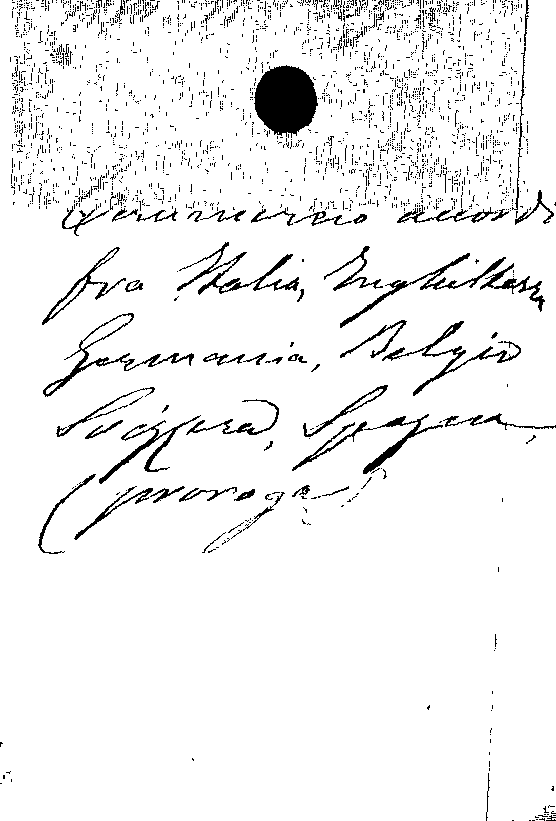 Commercio accordi
fra Italia, Inghilterra
Germania, Belgio
Svizzera, Spagna,
(proroga)